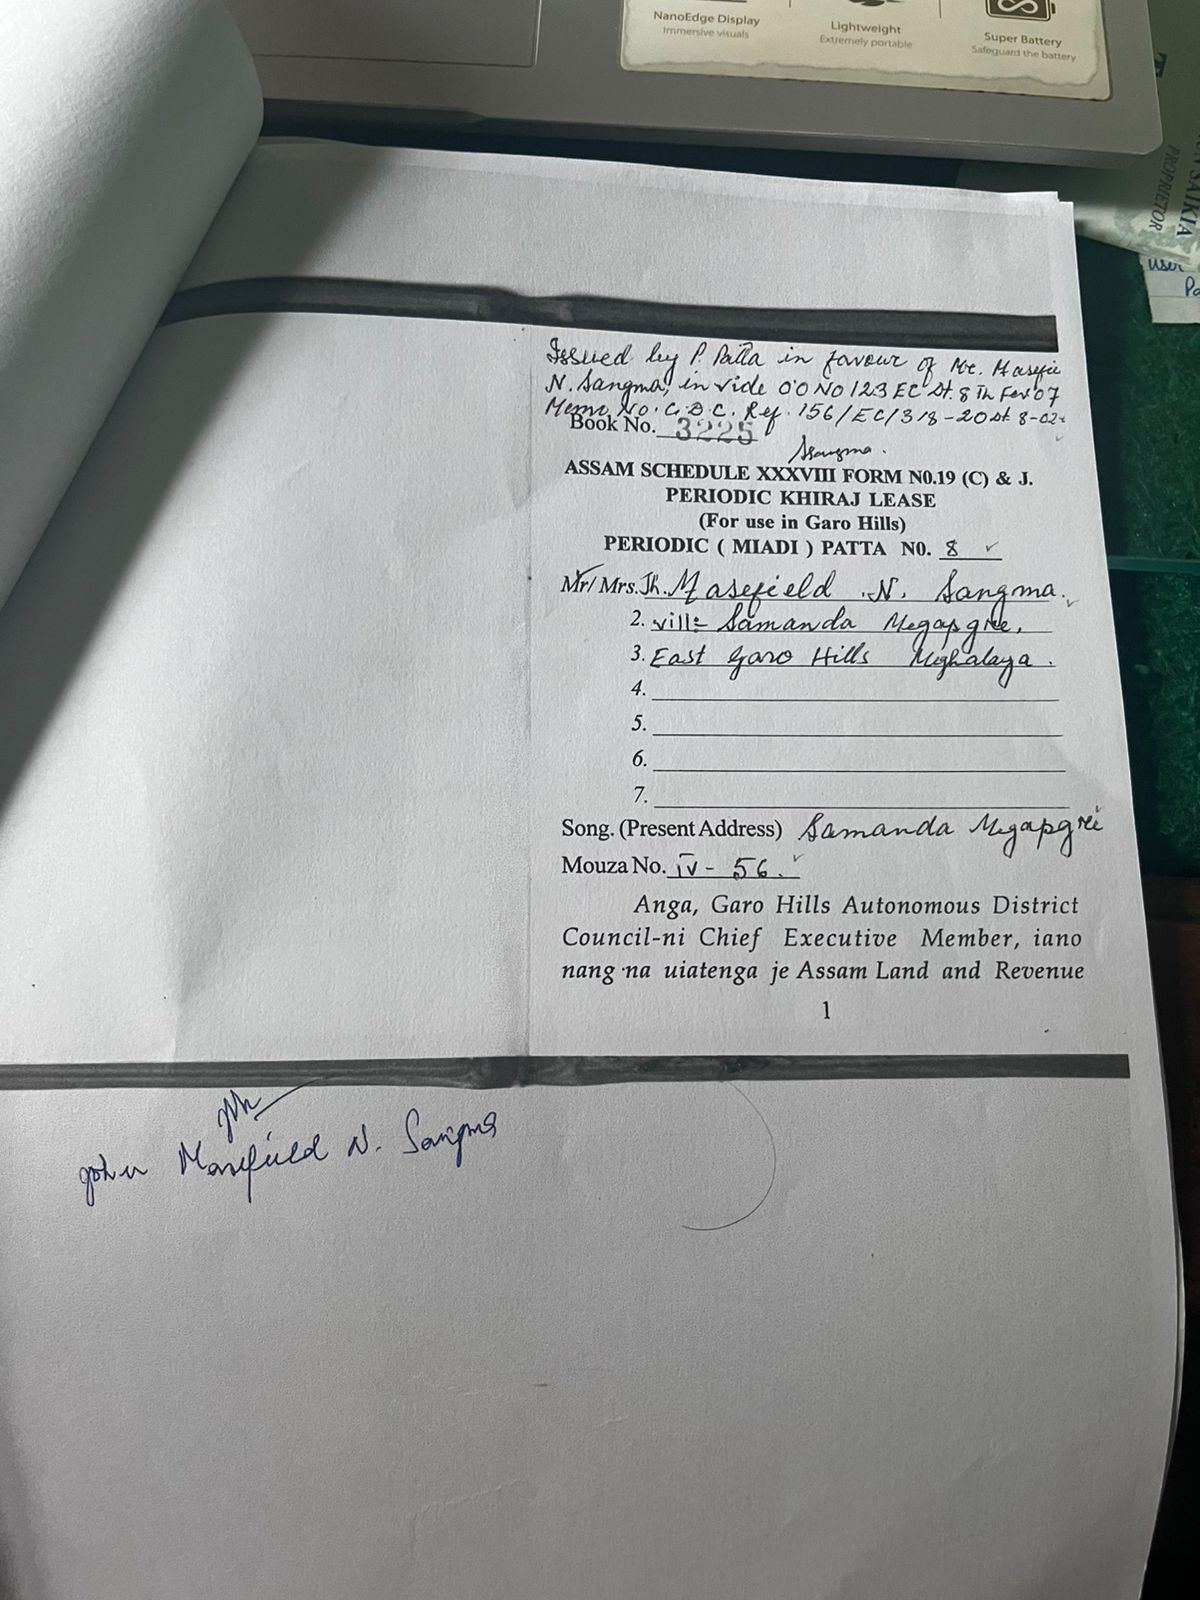 NanoEdge Display
Immersive visuals
Lightweight
Extremely portable
Super Battery
Safeguard the battery
SAIKIA
PROPRIETOR
Issued by P. Patta in favour of Mr. Masefie
N. Sangma, in vide O.O NO 123 EC dt. 8 Th Feb' 07
Memo No. G.D.C. Ref. 156/EC/318-20 dt 8-02-
Book No. 3225
Sangma.
ASSAM SCHEDULE XXXVIII FORM N0.19 (C) & J.
PERIODIC KHIRAJ LEASE
(For use in Garo Hills)
PERIODIC ( MIADI ) PATTA N0. 8
Mr/ Mrs. Jh. Masefield .N. Sangma.
2. vill:- Samanda Megapgre,
3. East Garo Hills Meghalaya.
4.
5.
6.
7.
Song. (Present Address) Samanda Megapgre
Mouza No. IV - 56.
Anga, Garo Hills Autonomous District
Council-ni Chief Executive Member, iano
nang·na uiatenga je Assam Land and Revenue
1
John Masefield N. Sangma